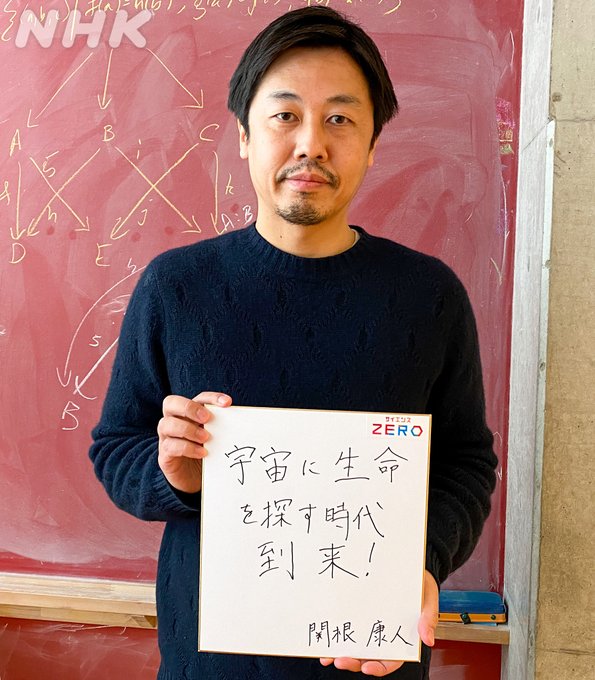 NHK
A B C
D E
B
サイエンス
ZERO
宇宙に生命
を探す時代
到来!
関根 康人